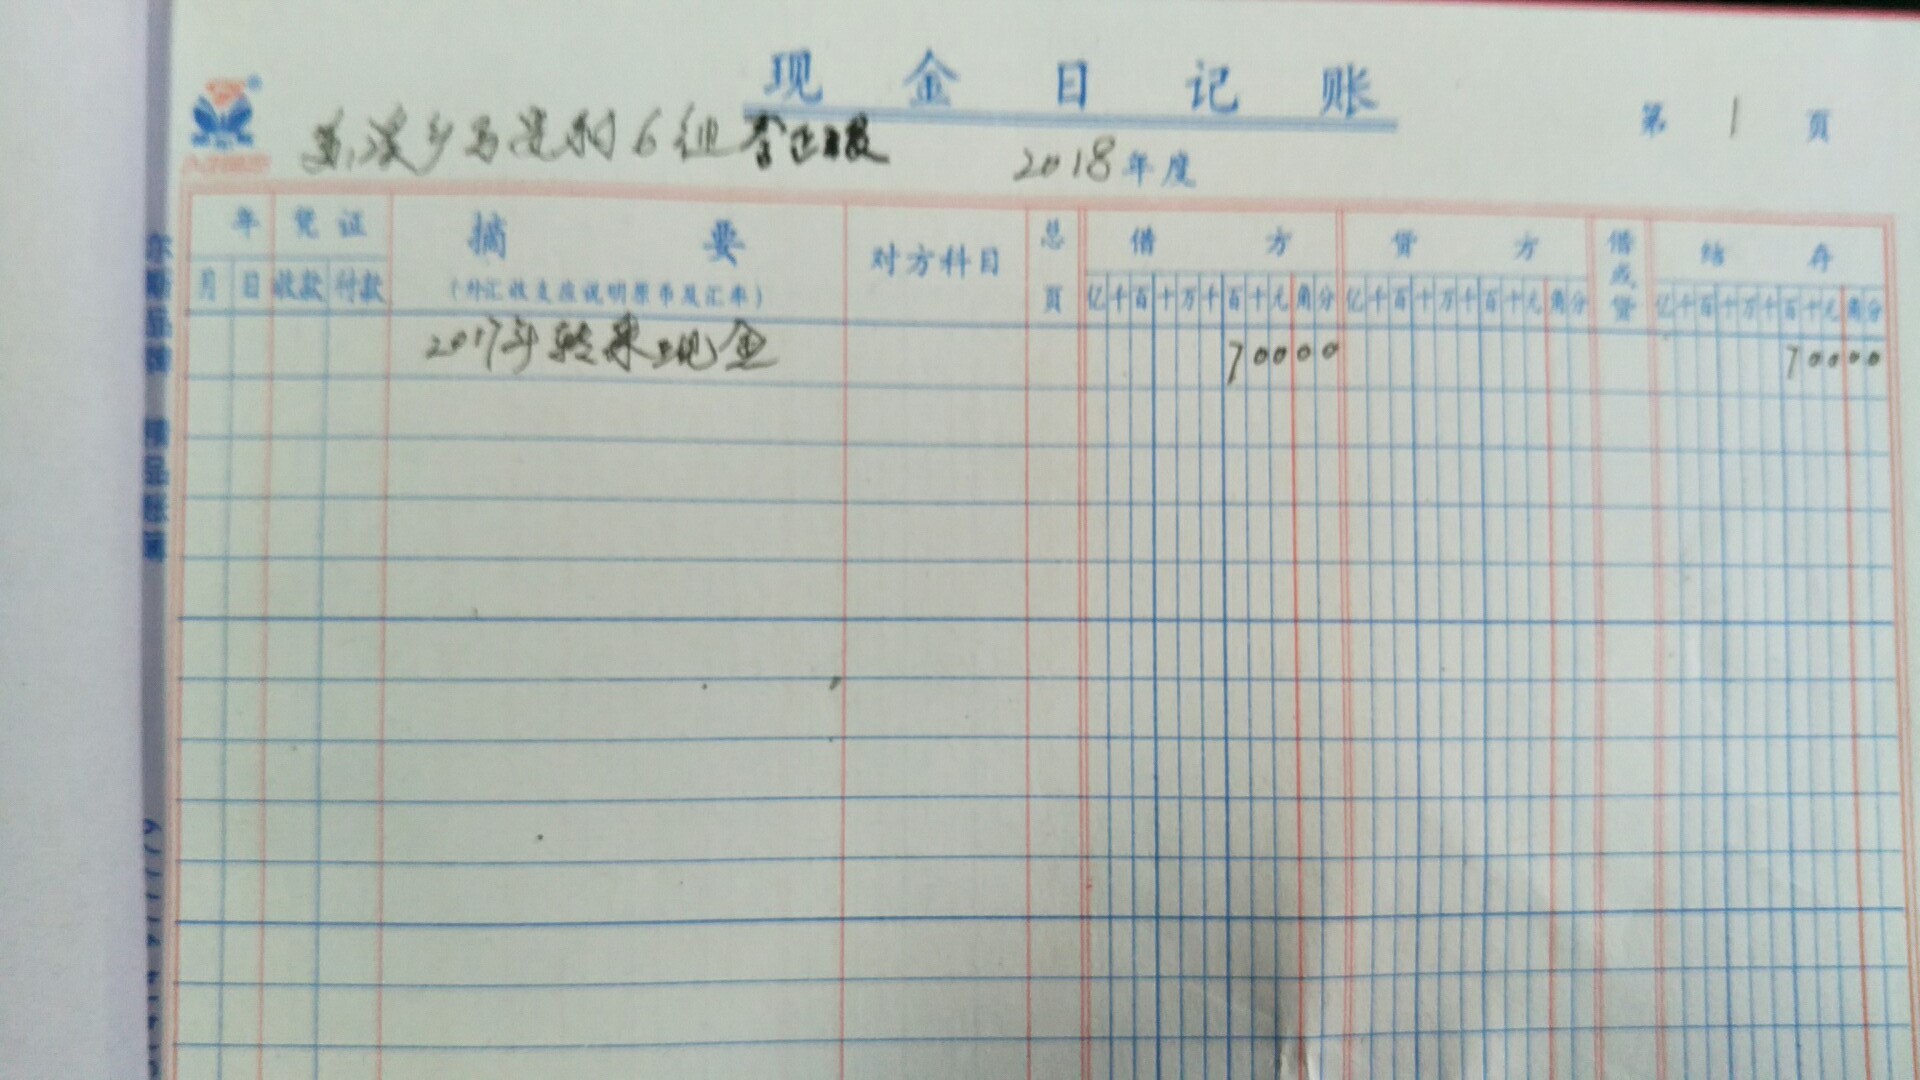 现金日记账
第 1 页
乡 村6组
2018年度
年 凭证 摘要 对方科目 总页 借方 贷方 借或贷 结存
月 日 收款 付款 (外汇收支应说明原币及汇率) 亿千百十万千百十元角分 亿千百十万千百十元角分 亿千百十万千百十元角分
2017年转来现金 70000 70000